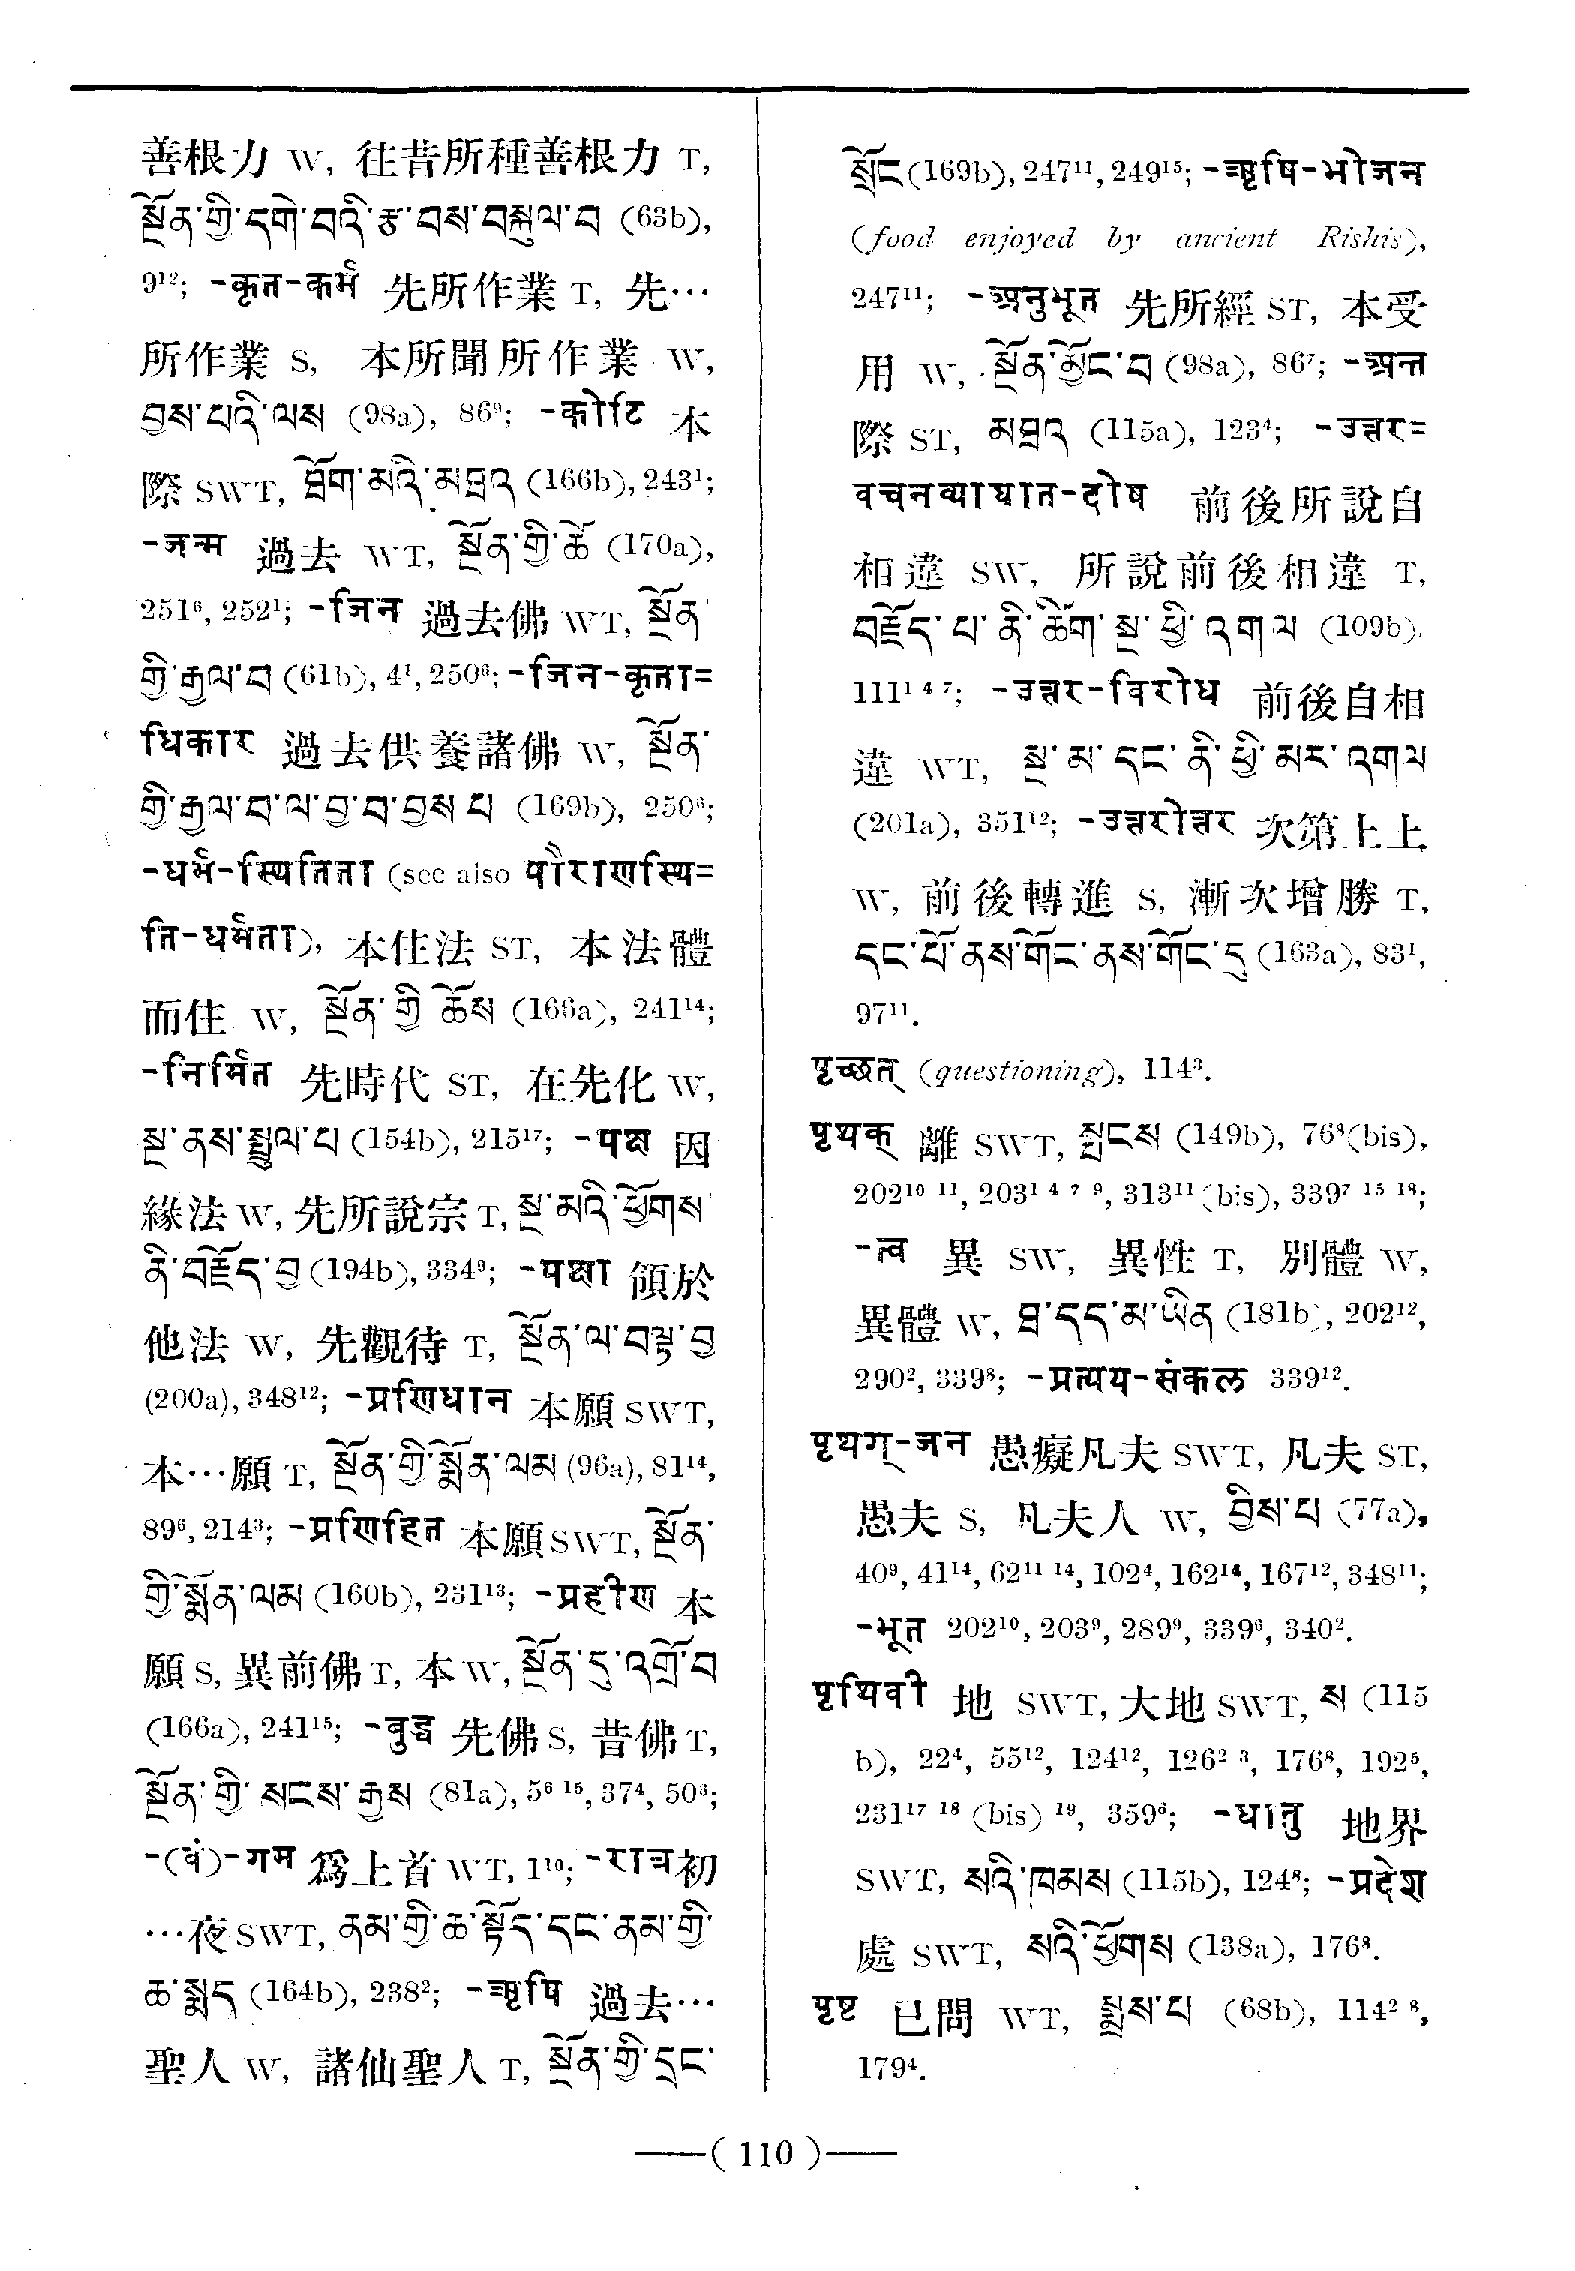 善根力 W, 往昔所種善根力 T,
སྔོན་གྱི་དགེ་བའི་རྩ་བས་བསྐུལ་བ (63b),
9¹²; -कृत-कर्म 先所作業 T, 先…
所作業 S, 本所聞所作業 W,
བྱས་པའི་ལས (98a), 86⁹; -कोटि 本
際 SWT, ཐོག་མའི་མཐའ (166b), 243¹;
-जन्म 過去 WT, སྔོན་གྱི་ཚེ (170a),
251⁶, 252¹; -जिन 過去佛 WT, སྔོན་
གྱི་རྒྱལ་བ (61b), 4¹, 250⁶; -जिन-कृता=
धिकार 過去供養諸佛 W, སྔོན་
གྱི་རྒྱལ་བ་ལ་བྱ་བ་བྱས་པ (169b), 250⁶;
-धर्म-स्थितिता (see also पौराणस्थि=
ति-धर्मता), 本住法 ST, 本法體
而住 W, སྔོན་གྱི་ཆོས (166a), 241¹⁴;
-निर्मित 先時代 ST, 在先化 W,
སྔ་ནས་སྤྲུལ་པ (154b), 215¹⁷; -पक्ष 因
緣法 W, 先所說宗 T, སྔ་མའི་ཕྱོགས་
ནི་བརྗོད་བྱ (194b), 334⁹; -पक्षा 領於
他法 W, 先觀待 T, སྔོན་ལ་བལྟ་བྱ
(200a), 348¹²; -प्रणिधान 本願 SWT,
本…願 T, སྔོན་གྱི་སྨོན་ལམ (96a), 81¹⁴,
89⁶, 214³; -प्रणिहित 本願 SWT, སྔོན་
གྱི་སྨོན་ལམ (160b), 231¹³; -प्रहीण 本
願 S, 異前佛 T, 本 W, སྔོན་དུ་འགྲོ་བ
(166a), 241¹⁵; -बुद्ध 先佛 S, 昔佛 T,
སྔོན་གྱི་སངས་རྒྱས (81a), 5⁶ ¹⁵, 37⁴, 50³;
-(वं)-गम 爲上首 WT, 1¹⁰; -रात्र 初
…夜 SWT, ནམ་གྱི་ཆ་སྟོད་དང་ནམ་གྱི་
ཆ་སྨད (164b), 238²; -ऋषि 過去…
聖人 W, 諸仙聖人 T, སྔོན་གྱི་དྲང་
སྲོང (169b), 247¹¹, 249¹⁵; -ऋषि-भोजन
(food enjoyed by ancient Rishis),
247¹¹; -अनुभूत 先所經 ST, 本受
用 W, སྔོན་མྱོང་བ (98a), 86⁷; -अन्त
際 ST, མཐའ (115a), 123⁴; -उत्तर=
वचनव्याघात-दोष 前後所說自
相違 SW, 所說前後相違 T,
བརྗོད་པ་ནི་ཚིག་སྔ་ཕྱི་འགལ (109b),
111¹ ⁴ ⁷; -उत्तर-विरोध 前後自相
違 WT, སྔ་མ་དང་ནི་ཕྱི་མར་འགལ
(201a), 351¹²; -उत्तरोत्तर 次第上上
W, 前後轉進 S, 漸次增勝 T,
དང་པོ་ནས་གོང་ནས་གོང་དུ (163a), 83¹,
97¹¹.
पृच्छत् (questioning), 114³.
पृथक् 離 SWT, སྤངས (149b), 76⁸(bis),
202¹⁰ ¹¹, 203¹ ⁴ ⁷ ⁹, 313¹¹(bis), 339⁷ ¹⁵ ¹⁸;
-त्व 異 SW, 異性 T, 別體 W,
異體 W, ཐ་དད་མ་ཡིན (181b), 202¹²,
290², 339⁸; -प्रत्यय-संकल 339¹².
पृथग्-जन 愚癡凡夫 SWT, 凡夫 ST,
愚夫 S, 凡夫人 W, བྱིས་པ (77a),
40⁹, 41¹⁴, 62¹¹ ¹⁴, 102⁴, 162¹⁴, 167¹², 348¹¹;
-भूत 202¹⁰, 203⁹, 289⁹, 339⁶, 340².
पृथिवी 地 SWT, 大地 SWT, ས (115
b), 22⁴, 55¹², 124¹², 126² ³, 176⁸, 192⁵,
231¹⁷ ¹⁸ (bis) ¹⁹, 359⁶; -धातु 地界
SWT, སའི་ཁམས (115b), 124⁸; -प्रदेश
處 SWT, སའི་ཕྱོགས (138a), 176⁸.
पृष्ट 已問 WT, སྨྲས་པ (68b), 114² ⁸,
179⁴.
——( 110 )——